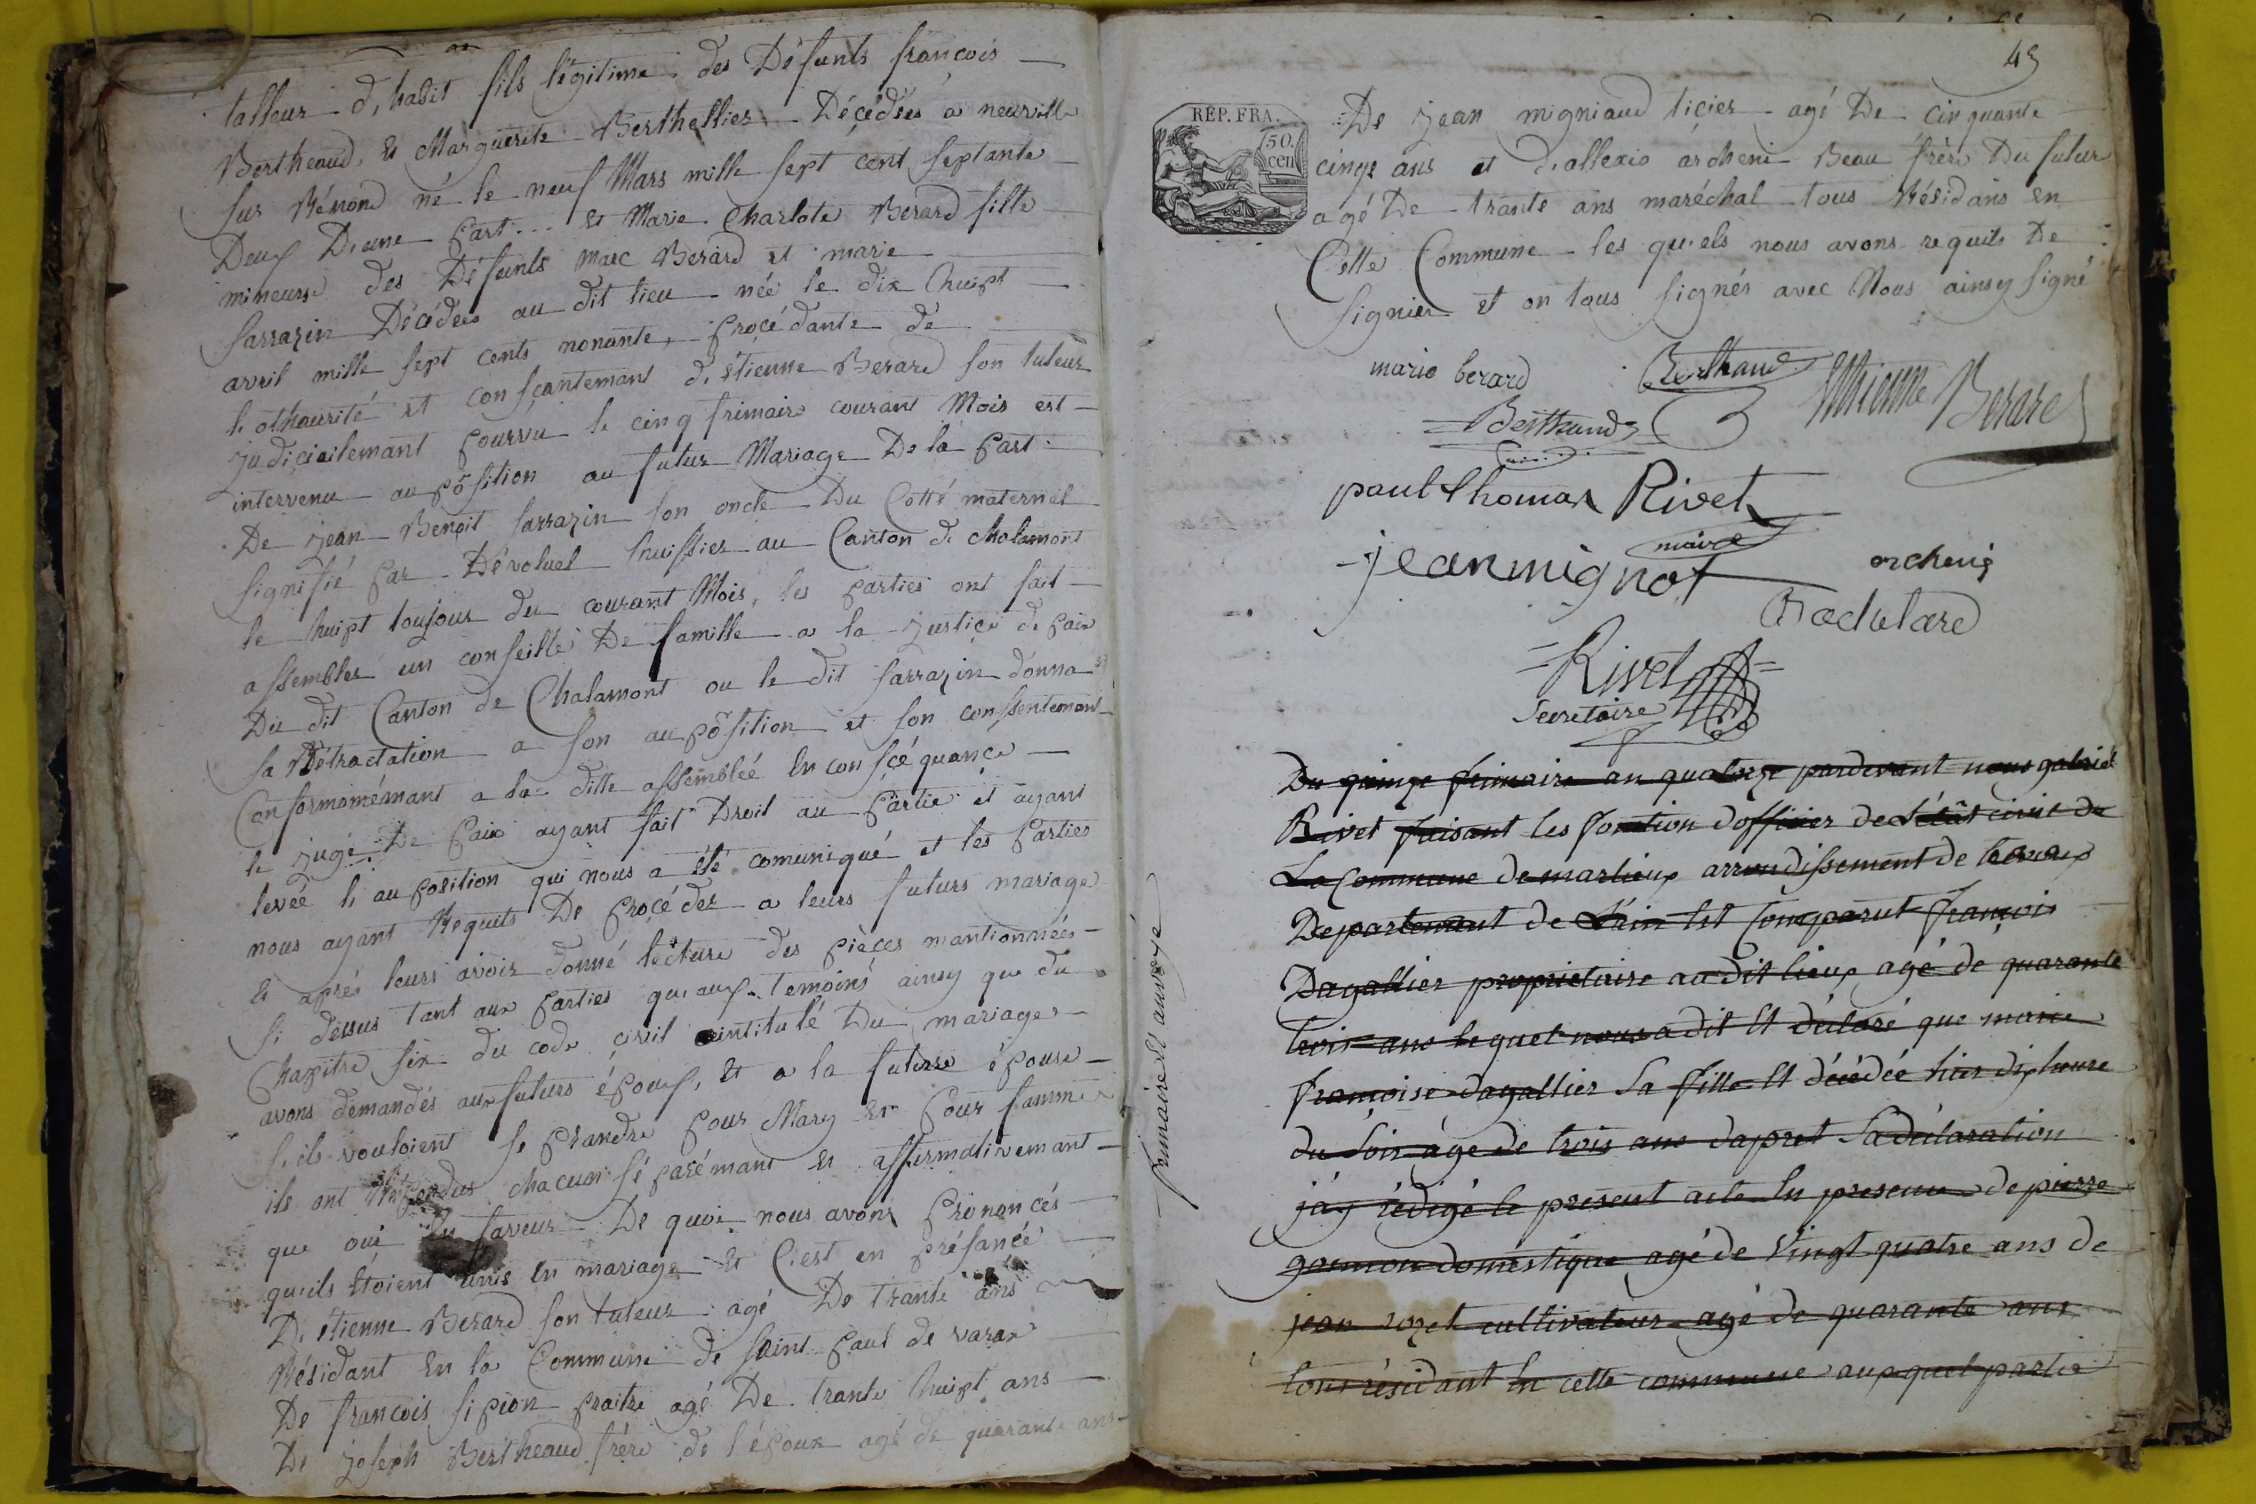 talleur d, habit fils légitime des Défunts francois
Bertheaud, Et Marguerite Berthellier Décédées a neuville
sur Rénond né le neuf Mars mille sept cent septante
Deux D,eune part... Et Marie Charlote Berard fille
mineurse des Défunts Marc Berard et marie
Sarrazin Décédées au dit lieu née le dix huipt
avril mille sept cents nonante, procédante de
l, othaurité et consçantemant d, étienne Berard son tuteur
judiciailemant pourvu le cinq frimaire courant Mois est
intervenu aupôsition au futur Mariage De la part
De jean Benoit Sarrazin son oncle Du Cotté maternel
signifié par Dévoluel huissier au Canton de Chalamont
le huipt toujour du courant Mois, les parties ont fait
assembler un conseille De famille a la justice de paix
Du dit Canton de Chalamont ou le dit Sarrazin donna
sa Rétractation a son aupôsition et son conssentemant
Conformomémant a la ditte assembleé En consçéquance
le jugé De paix ayant fait Droit au partie et ayant
levéé l, auposition qui nous a été comuniqué et les parties
nous ayant Requits De procéder a leurs futurs mariage
Et aprés leurs avoir donné lécture des pièces mantionnées
si déssus tant aux parties qu,aux temoins ainsy que du
Chapitre six du code çivil intitulé Du mariage
avons demandés aux futurs époux, Et a la futurse épouse
s,ils vouloient se prandre pour Mary Et pour famme
ils ont Répondus chacun séparémant Et affirmativemant
que oui En faveur De quoi nous avons prononcés
qu,ils Etoient unis En mariage Et C,est en présancé
D, étienne Berard son tuteur agé De trante ans
Résidant En la Commune de saint paul de varax
De francois sipion praitre agé De trante huipt ans
De joseph Bertheaud frére de l'époux agé de quarante ans
45
REP. FRA.
50.
cen
De jean migniaud tiçier agé De cinquante
cinqe ans et d,allexis archeni Beau frére Du futur
agé De trante ans maréchal tous Résidans en
Cette Commune les qu,els nous avons requits De
Signier et on tous signés avec Nous ainsy signé
marie berard
Berthaud
Ethienne Berard
Berthaud
paul thomas Rivet
maire
jean mignot
orcheni
Bachelard
Rivet
Secretaire
Du quinze frimaire an quatorze pardevant nous gabriel
Rivet faisant les fonction d'officier de l'état civil de
La commune de marlieux arrondissement de trevoux
Departement de L'ain Est Comparut françois
Dagallier propriétaire au dit lieux agé de quarante
trois ans lequel nous a dit Et déclaré que marie
françoise dagallier Sa fille Et décédée hier dix heure
du Soir agé de trois ans d'apret Sa déclaration
j'ay rédigé le présent acte En presence de pierre
domestique agé de Vingt quatre ans de
jean rozet cultivateur agé de quarante ans
tous résidant En cette commune auxquel partie